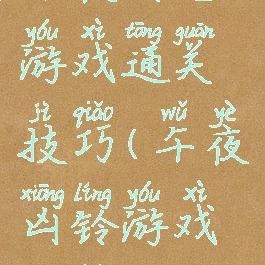 yóu xì tōng guān
游戏通关
jì qiǎo wǔ yè
技巧(午夜
xiōng líng yóu xì
凶铃游戏